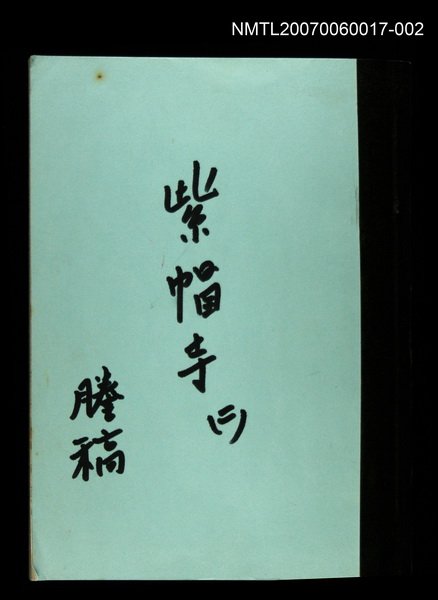 NMTL20070060017-002
紫帽寺㈡
謄稿